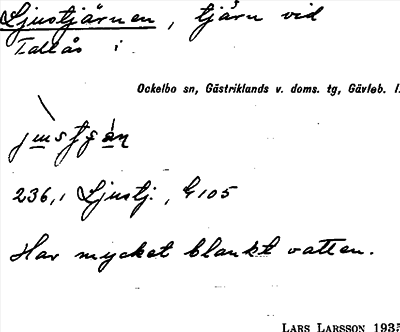 Ljustjärnen, tjärn vid
Tallås i
Ockelbo sn, Gästriklands v. doms. tg, Gävleb. l.
236,1 Ljustj., G105
Har mycket blankt vatten.
LARS LARSSON 1935